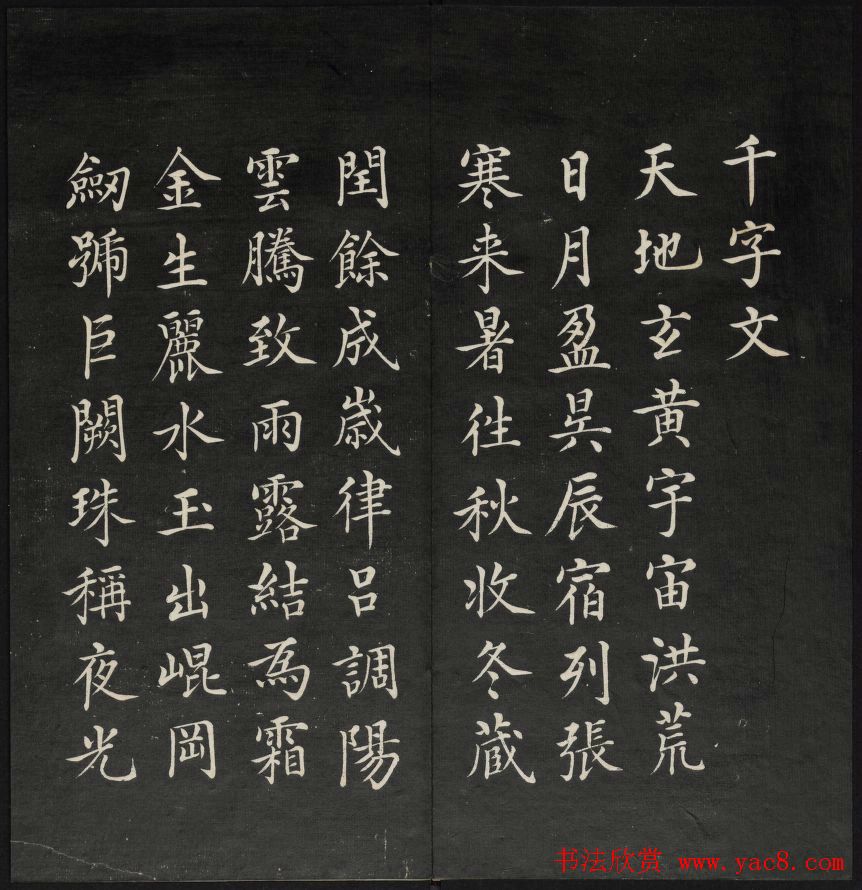 千字文
天地玄黃宇宙洪荒
日月盈昃辰宿列張
寒来暑往秋收冬蔵
閏餘成歲律呂調陽
雲騰致雨露結為霜
金生麗水玉出崐岡
劒號巨闕珠稱夜光
书法欣赏 www.yac8.com